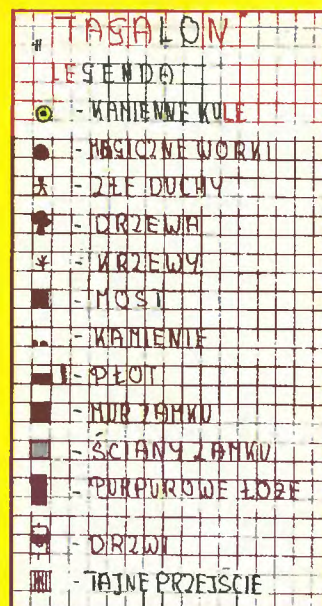 "TASALON"
LEGENDA
- KAMIENNE KULE
- MAGICZNE WORKI
- ZŁE DUCHY
- DRZEWA
- KRZEWY
- MOST
- KAMIENIE
- PŁOT
- MUR ZAMKU
- ŚCIANY ZAMKU
- PURPUROWE ŁOŻE
- DRZWI
- TAJNE PRZEJŚCIE